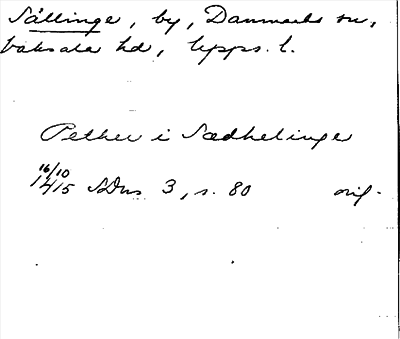 Sällinge, by, Danmarks sn,
Vaksala hd, Upps. l.
Pether i Sædhelinge
16/10
1415 SDns 3, s. 80 orig.